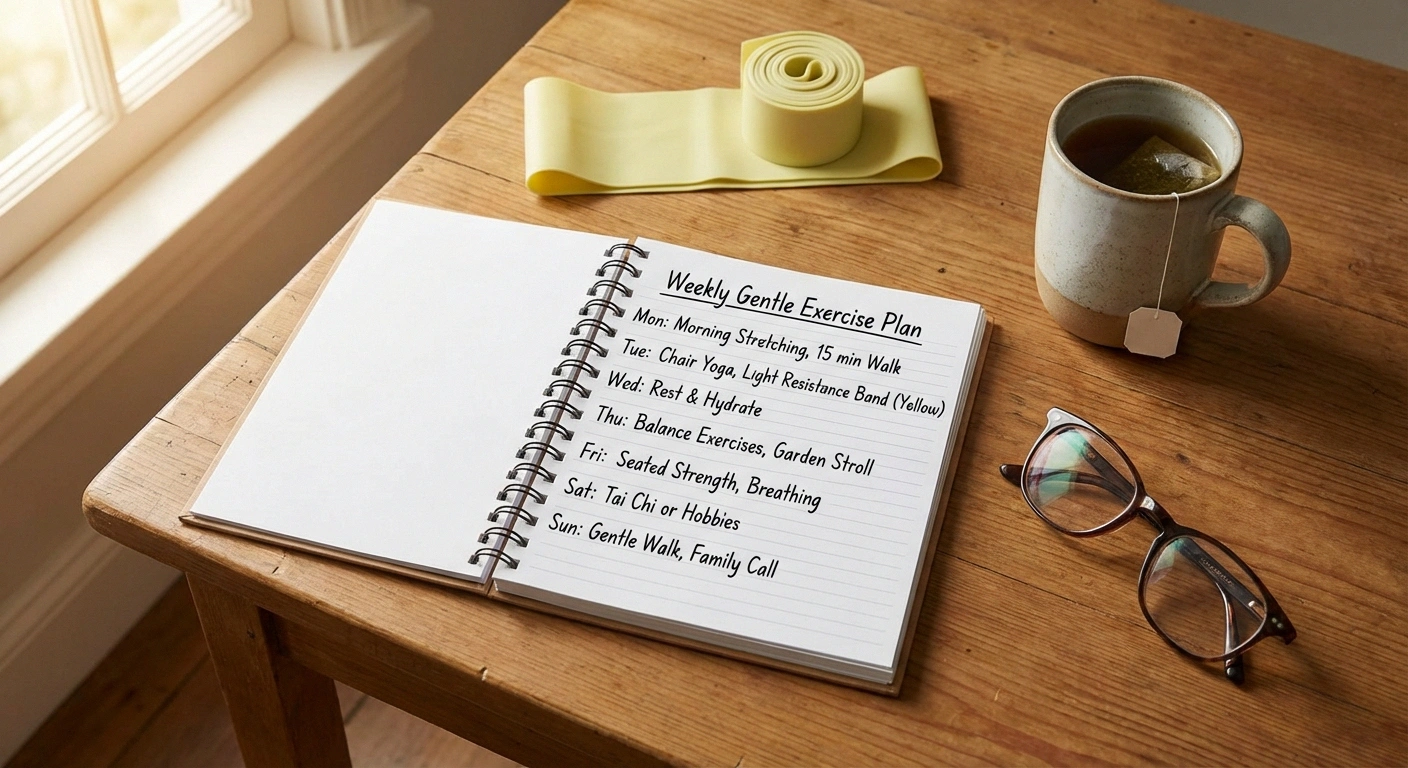 Weekly Gentle Exercise Plan
Mon: Morning Stretching, 15 min Walk
Tue: Chair Yoga, Light Resistance Band (Yellow)
Wed: Rest & Hydrate
Thu: Balance Exercises, Garden Stroll
Fri: Seated Strength, Breathing
Sat: Tai Chi or Hobbies
Sun: Gentle Walk, Family Call